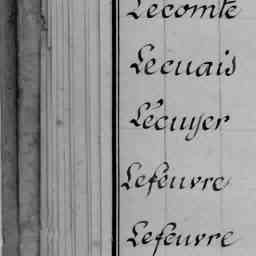 Lecomte
Lecuais
Lécuyer
Lefeuvre
Lefeuvre